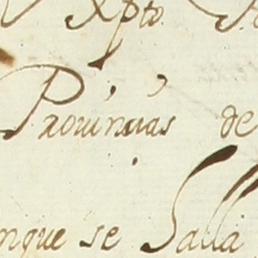 Xpto
Prouinçias de
nque se Salla